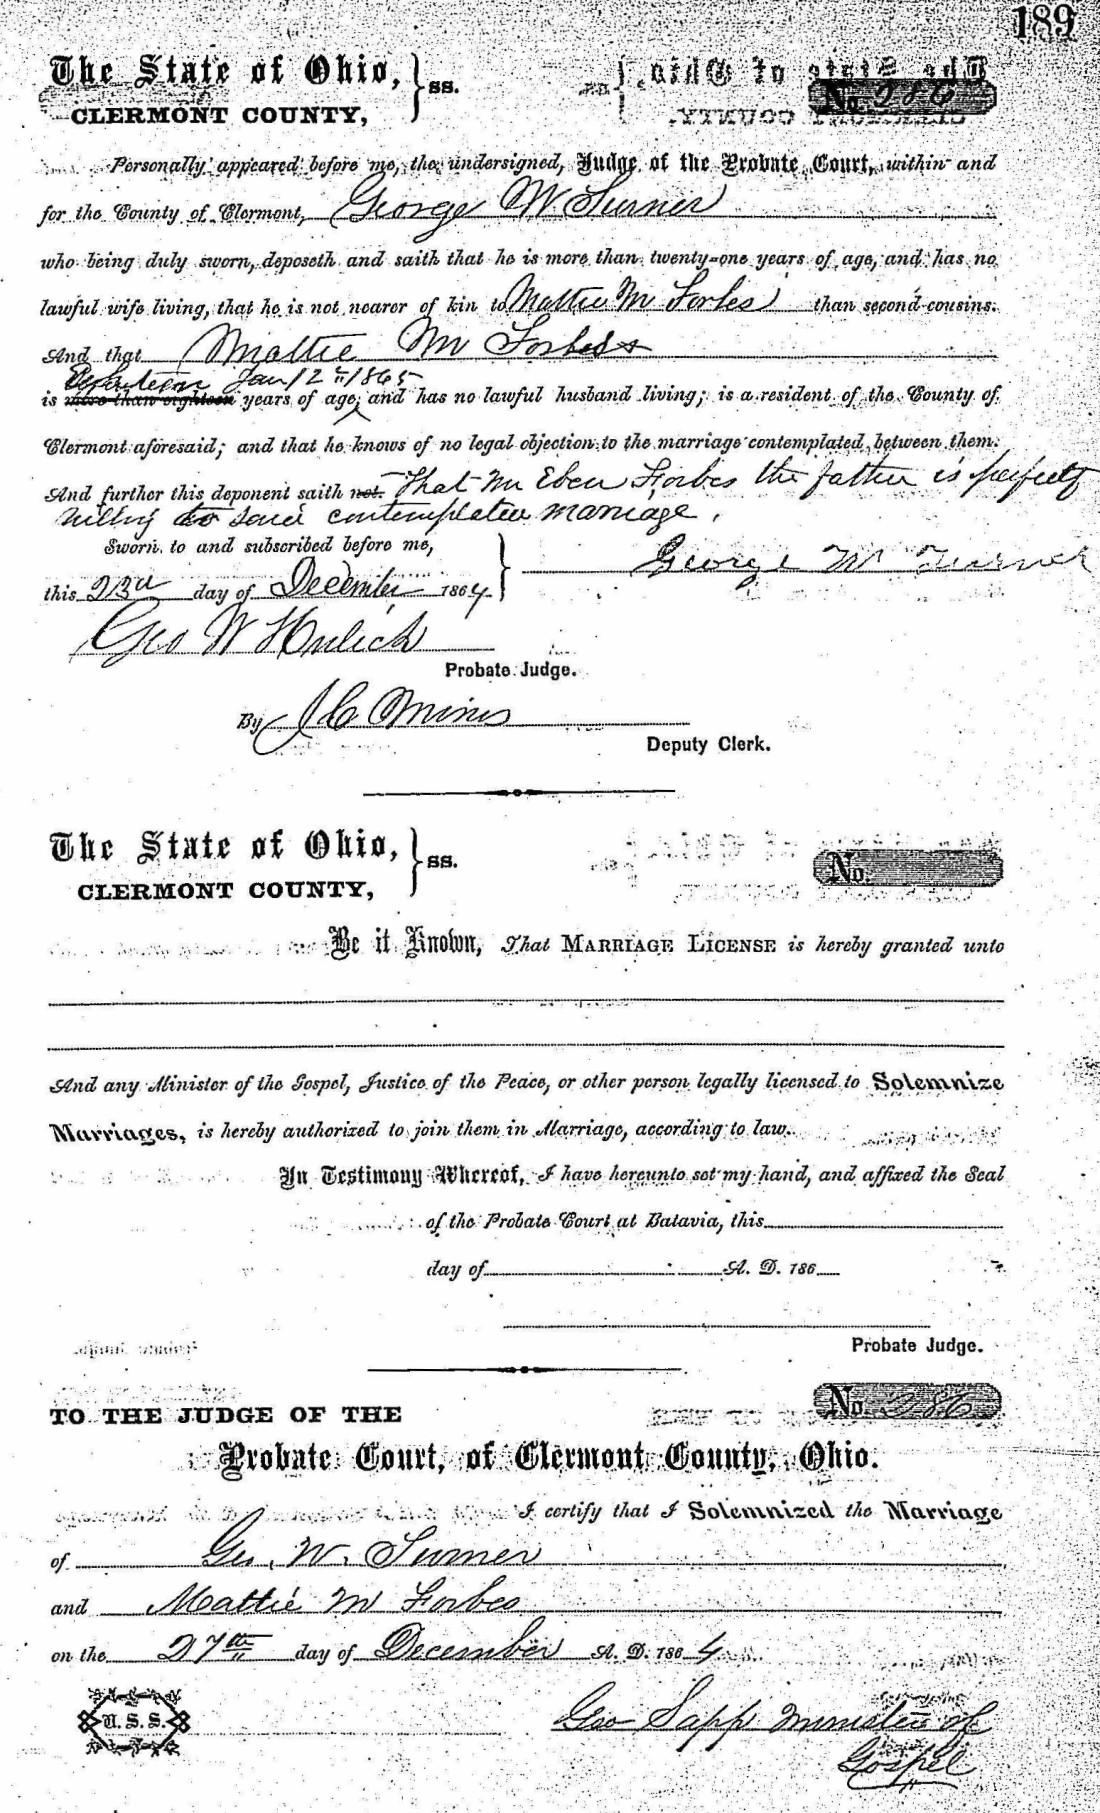 189
The State of Ohio, } ss.
No. 286
CLERMONT COUNTY,
Personally appeared before me, the undersigned, Judge of the Probate Court, within and
for the County of Clermont, George W Turner
who being duly sworn, deposeth and saith that he is more than twenty-one years of age, and has no
lawful wife living, that he is not nearer of kin to Mattie M Forbes than second cousins.
And that Mattie M Forbes
Eighteen Jan 12th 1865
is more than eighteen years of age, and has no lawful husband living; is a resident of the County of
Clermont aforesaid; and that he knows of no legal objection to the marriage contemplated between them.
And further this deponent saith not. That Mr Eben Forbes the father is perfectly
willing to said contemplated marriage.
Sworn to and subscribed before me,
George W Turner
this 23rd day of December 1864
Geo W Hulick
Probate Judge.
By J C Minis
Deputy Clerk.
The State of Ohio, } ss.
No.
CLERMONT COUNTY,
Be it Known, That MARRIAGE LICENSE is hereby granted unto
And any Minister of the Gospel, Justice of the Peace, or other person legally licensed to Solemnize
Marriages, is hereby authorized to join them in Marriage, according to law.
In Testimony Whereof, I have hereunto set my hand, and affixed the Seal
of the Probate Court at Batavia, this
day of A. D. 186
Probate Judge.
No. 286
TO THE JUDGE OF THE
Probate Court, of Clermont County, Ohio.
I certify that I Solemnized the Marriage
of Geo. W. Turner
and Mattie M Forbes
on the 27th day of December A. D. 1864
U. S. S.
Geo Sapp Minister of
Gospel